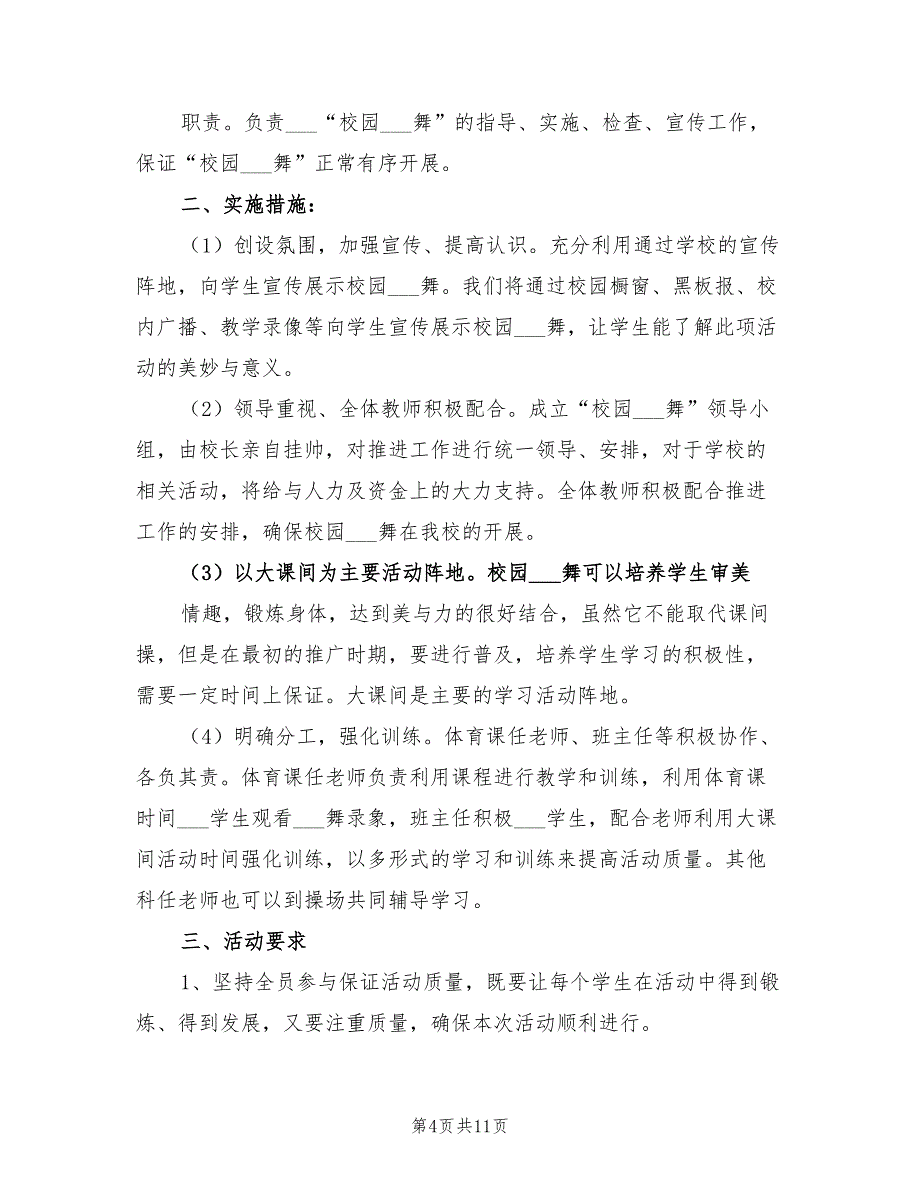 职责。负责___“校园___舞”的指导、实施、检查、宣传工作，
保证“校园___舞”正常有序开展。
二、实施措施：
（1）创设氛围，加强宣传、提高认识。充分利用通过学校的宣传
阵地，向学生宣传展示校园___舞。我们将通过校园橱窗、黑板报、校
内广播、教学录像等向学生宣传展示校园___舞，让学生能了解此项活
动的美妙与意义。
（2）领导重视、全体教师积极配合。成立“校园___舞”领导小
组，由校长亲自挂帅，对推进工作进行统一领导、安排，对于学校的
相关活动，将给与人力及资金上的大力支持。全体教师积极配合推进
工作的安排，确保校园___舞在我校的开展。
（3）以大课间为主要活动阵地。校园___舞可以培养学生审美
情趣，锻炼身体，达到美与力的很好结合，虽然它不能取代课间
操，但是在最初的推广时期，要进行普及，培养学生学习的积极性，
需要一定时间上保证。大课间是主要的学习活动阵地。
（4）明确分工，强化训练。体育课任老师、班主任等积极协作、
各负其责。体育课任老师负责利用课程进行教学和训练，利用体育课
时间___学生观看___舞录象，班主任积极___学生，配合老师利用大课
间活动时间强化训练，以多形式的学习和训练来提高活动质量。其他
科任老师也可以到操场共同辅导学习。
三、活动要求
1、坚持全员参与保证活动质量，既要让每个学生在活动中得到锻
炼、得到发展，又要注重质量，确保本次活动顺利进行。
第4页共11页